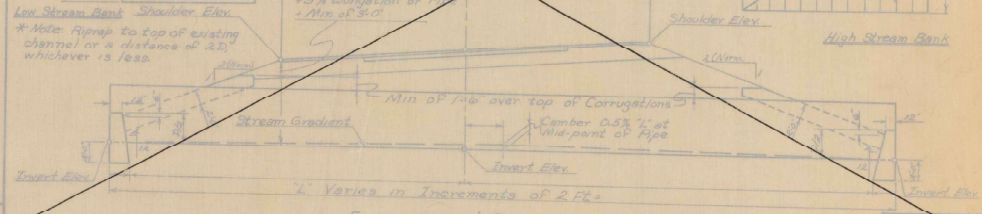 Low Stream Bank Shoulder Elev.
* Note: Riprap to top of existing
channel or a distance of 2D,
whichever is less.
+ 5% Elongation of Pipe
- Min of 3'-0"
Shoulder Elev.
High Stream Bank
2(Norm.)
2(Norm.)
Min of 1'-6" over top of Corrugations
Stream Gradient
Camber 0.5% "L" at
Mid-point of Pipe
12"
12"
12
Invert Elev.
Invert Elev.
Invert Elev.
"L" Varies in Increments of 2 Ft.